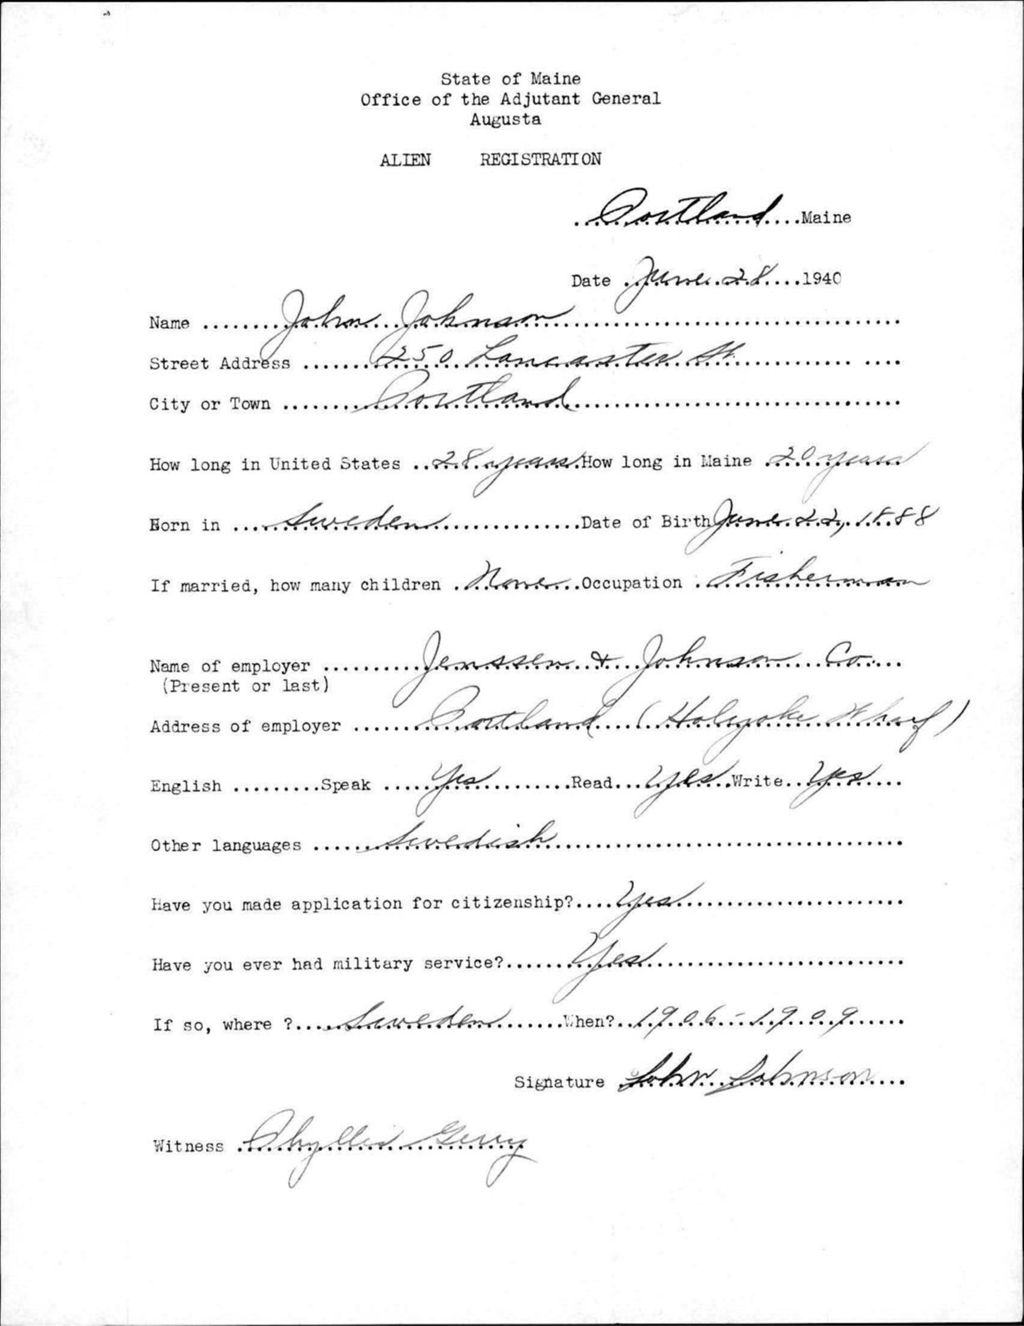 State of Maine
Office of the Adjutant General
Augusta
ALIEN REGISTRATION
Portland Maine
Date June 28 1940
Name John Johnson
Street Address 250 Lancaster St.
City or Town Portland
How long in United States 28 years How long in Maine 20 years
Born in Sweden Date of Birth June 22, 1888
If married, how many children None Occupation Fisherman
Name of employer Jenssen & Johnson Co.
(Present or last)
Address of employer Portland (Holyoke Wharf)
English Speak Yes Read Yes Write Yes
Other languages Swedish
Have you made application for citizenship? Yes
Have you ever had military service? Yes
If so, where ? Sweden When? 1906-1909
Signature John Johnson
Witness Phyllis Gerry